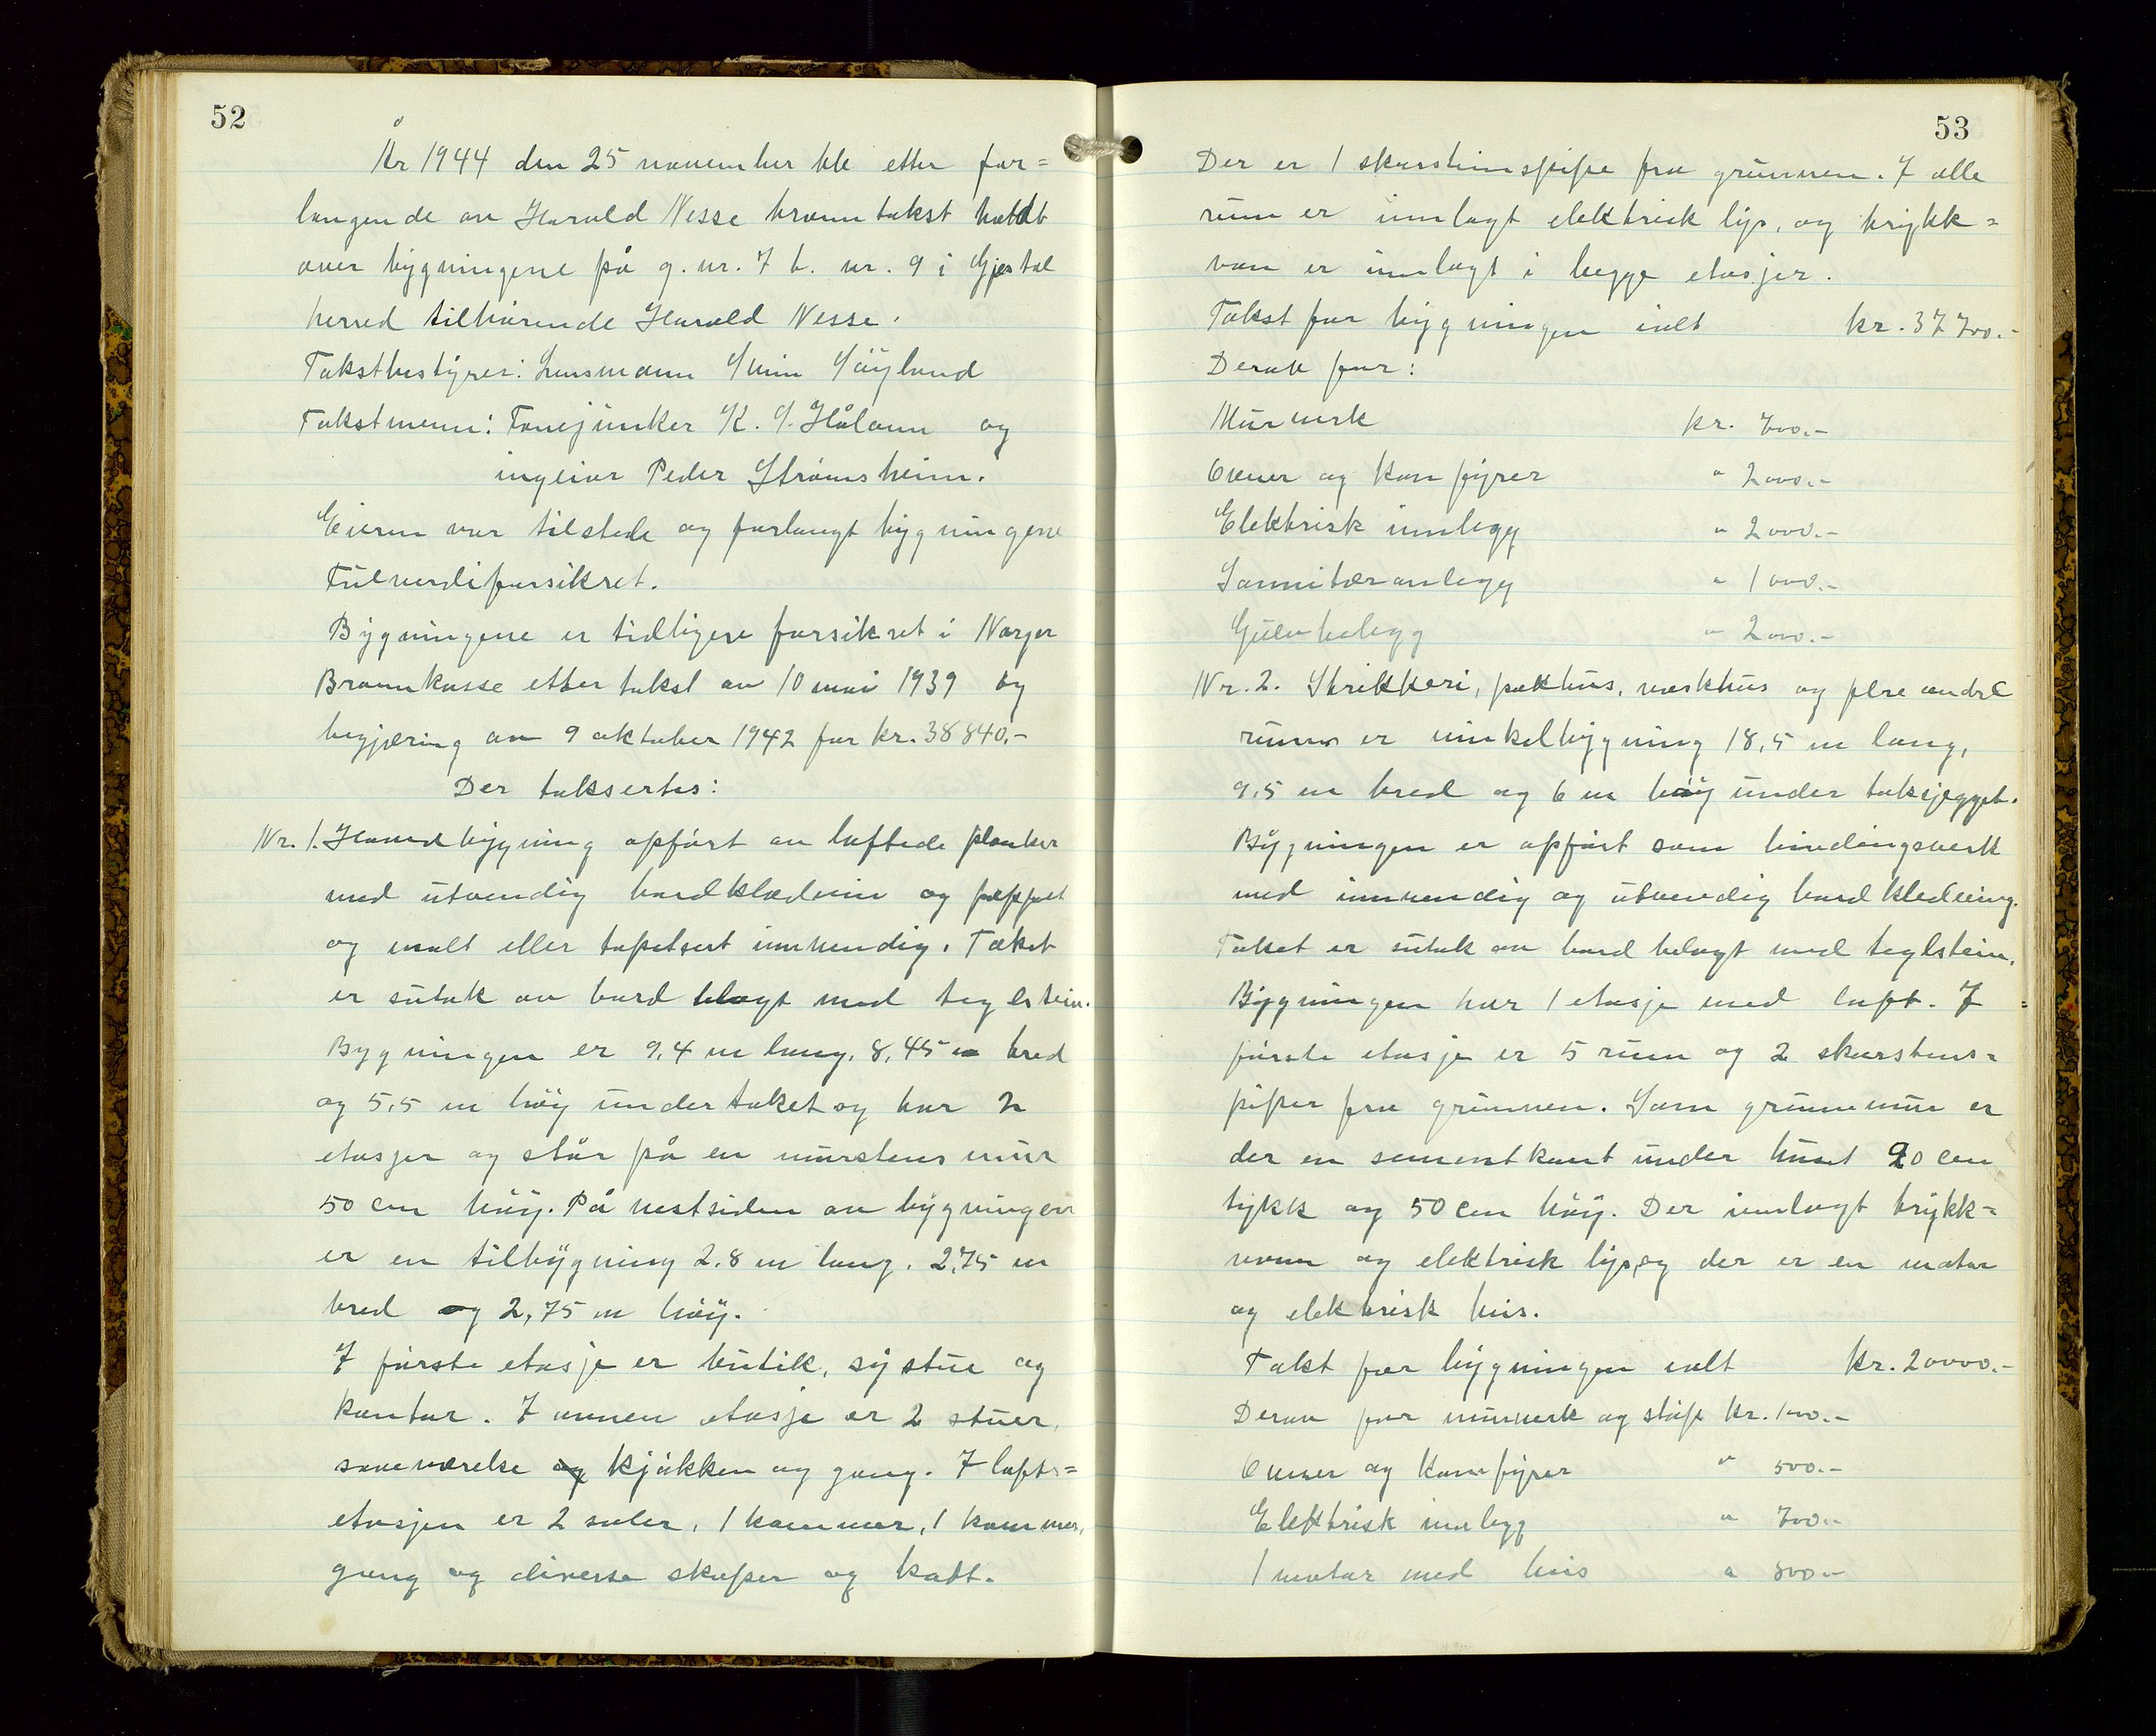 52
År 1944 den 25 november ble etter for=
langende av Harald Nesse branntakst holdt
over bygningene på g. nr. 7 b. nr. 9 i Gjesdal
herred tilhørende Harald Nesse.
Takstbestyrer: Lensmann Søyland
Takstmenn: Fanejunker K. S. Håland og
ingeiør Peder Strømsheim.
Eieren var tilstede og forlangt bygningene
Fullverdiforsikret.
Bygningene er tidligere forsikret i Norges
Brannkasse etter takst av 10 mai 1939 og
begjæring av 9 oktober 1942 for kr. 38840,-
Der taksertes:
Nr. 1. Hovedbygning opført av laftede planker
med utvendig bordklædnin og pappet
og malt eller tapetsert innvendig. Taket
er sutak av bord belagt med teglstein.
Bygningen er 9,4 m lang, 8,45 m bred
og 5,5 m høy under taket og har 2
etasjer og står på en murstens mur
50 cm høy. På vestsiden av bygningen
er en tilbygning 2,8 m lang, 2,75 m
bred og 2,75 m høy.
I første etasje er butik, systue og
kontor. I annen etasje er 2 stuer,
soveværelse og kjøkken og gang. I lofts=
etasjen er 2 saler, 1 kammer, 1 kammer,
gang og diverse skaper og kott.
53
Der er 1 skorsteinspipe fra grunnen. I alle
rum er innlagt elektrisk lys, og trykk=
van er innlagt i begge etasjer.
Takst for bygningen ialt kr. 37700.-
Derav for:
Murverk kr. 700.-
Ovner og komfyrer " 2000.-
Elektrisk innlegg " 2000.-
Sannitæranlegg " 1000.-
Gulvbelegg " 2000.-
Nr. 2. Strikkeri, pakhus, vaskhus og flere andre
rumm er vinkelbygning 18,5 m lang,
9,5 m bred og 6 m høy under takskjegget.
Bygningen er opført som bindingsverk
med innvendig og utvendig bordkledning.
Taket er sutak av bord belagt med teglstein.
Bygningen har 1 etasje med loft. I
første etasje er 5 rum og 2 skorstens=
piper fra grunnen. Som grunnmur er
der en sementkant under huset 20 cm
tykk og 50 cm høy. Der innlagt trykk=
vann og elektrisk lys, og der er en motor
og elektrisk heis.
Takt for bygningen ialt kr. 20000.-
Derav for murverk og støp kr. 100.-
Ovner og komfyrer " 500.-
Elektrisk innlegg " 700.-
1 motor med heis " 500.-